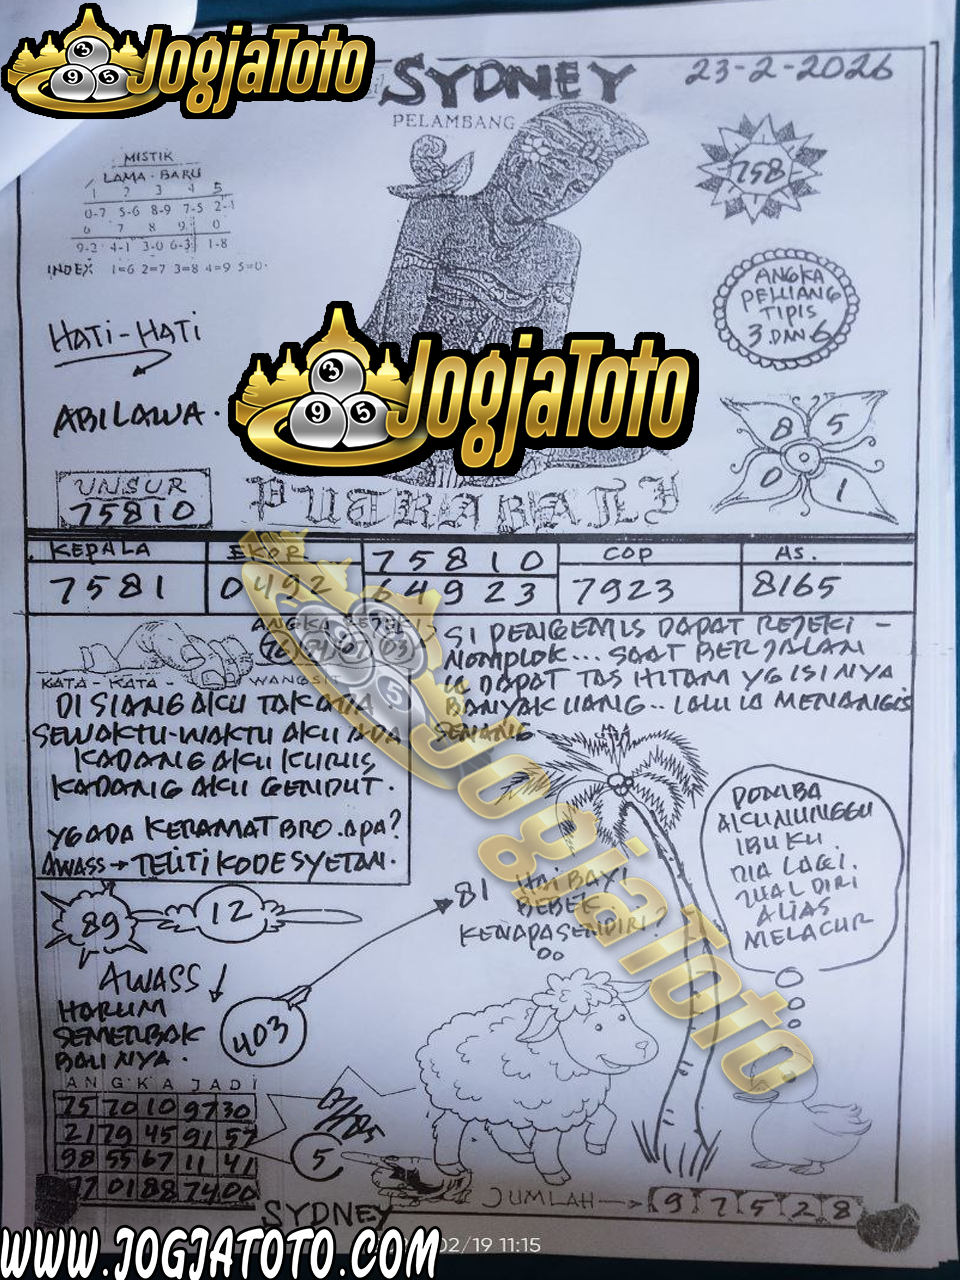 JogjaToto
SYDNEY
23-2-2026
PELAMBANG
MISTIK
LAMA - BARU
1 2 3 4 5
0-7 5-6 8-9 7-5 2-1
6 7 8 9 0
9-2 4-1 3-0 6-3 1-8
INDEX 1=6 2=7 3=8 4=9 5=0
758
ANGKA
PELUANG
TIPIS
3 DAN 6
HATI-HATI
ABILAWA.
JogjaToto
8 5
0 1
UNSUR
75810
PUTRA BALI
KEPALA
7581
EKOR
0492
75810
64923
COP
7923
AS.
8165
ANGKA
KATA - KATA - WANGSIT
DI SIANG AKU TAK ADA
SEWAKTU-WAKTU AKU ADA
KADANG AKU KURUS
KADANG AKU GENDUT.
YG ADA KERAMAT BRO. APA?
AWASS → TELITI KODE SYETAN.
SI PENGEMIS DAPAT REJEKI -
NOMPLOK... SAAT BERJALAN
DAPAT TAS HITAM YG ISINYA
BANYAK UANG.. LALU IA MENANGIS
SENANG
JogjaToto
DOMBA
AKU NUNGGU
IBUKU.
DIA LAGI.
JUAL DIRI
ALIAS
MELACUR
81 HAI BAYI
BEBEK
KENAPA SENDIRI?
89
12
AWASS
HARUM
SEMERBAK
BAUNYA.
403
ANGKA JADI
75 70 10 97 30
21 79 45 91 57
98 55 67 11 41
77 01 88 74 00
5
SYDNEY
JUMLAH → 9 7 5 2 8
02/19 11:15
WWW.JOGJATOTO.COM